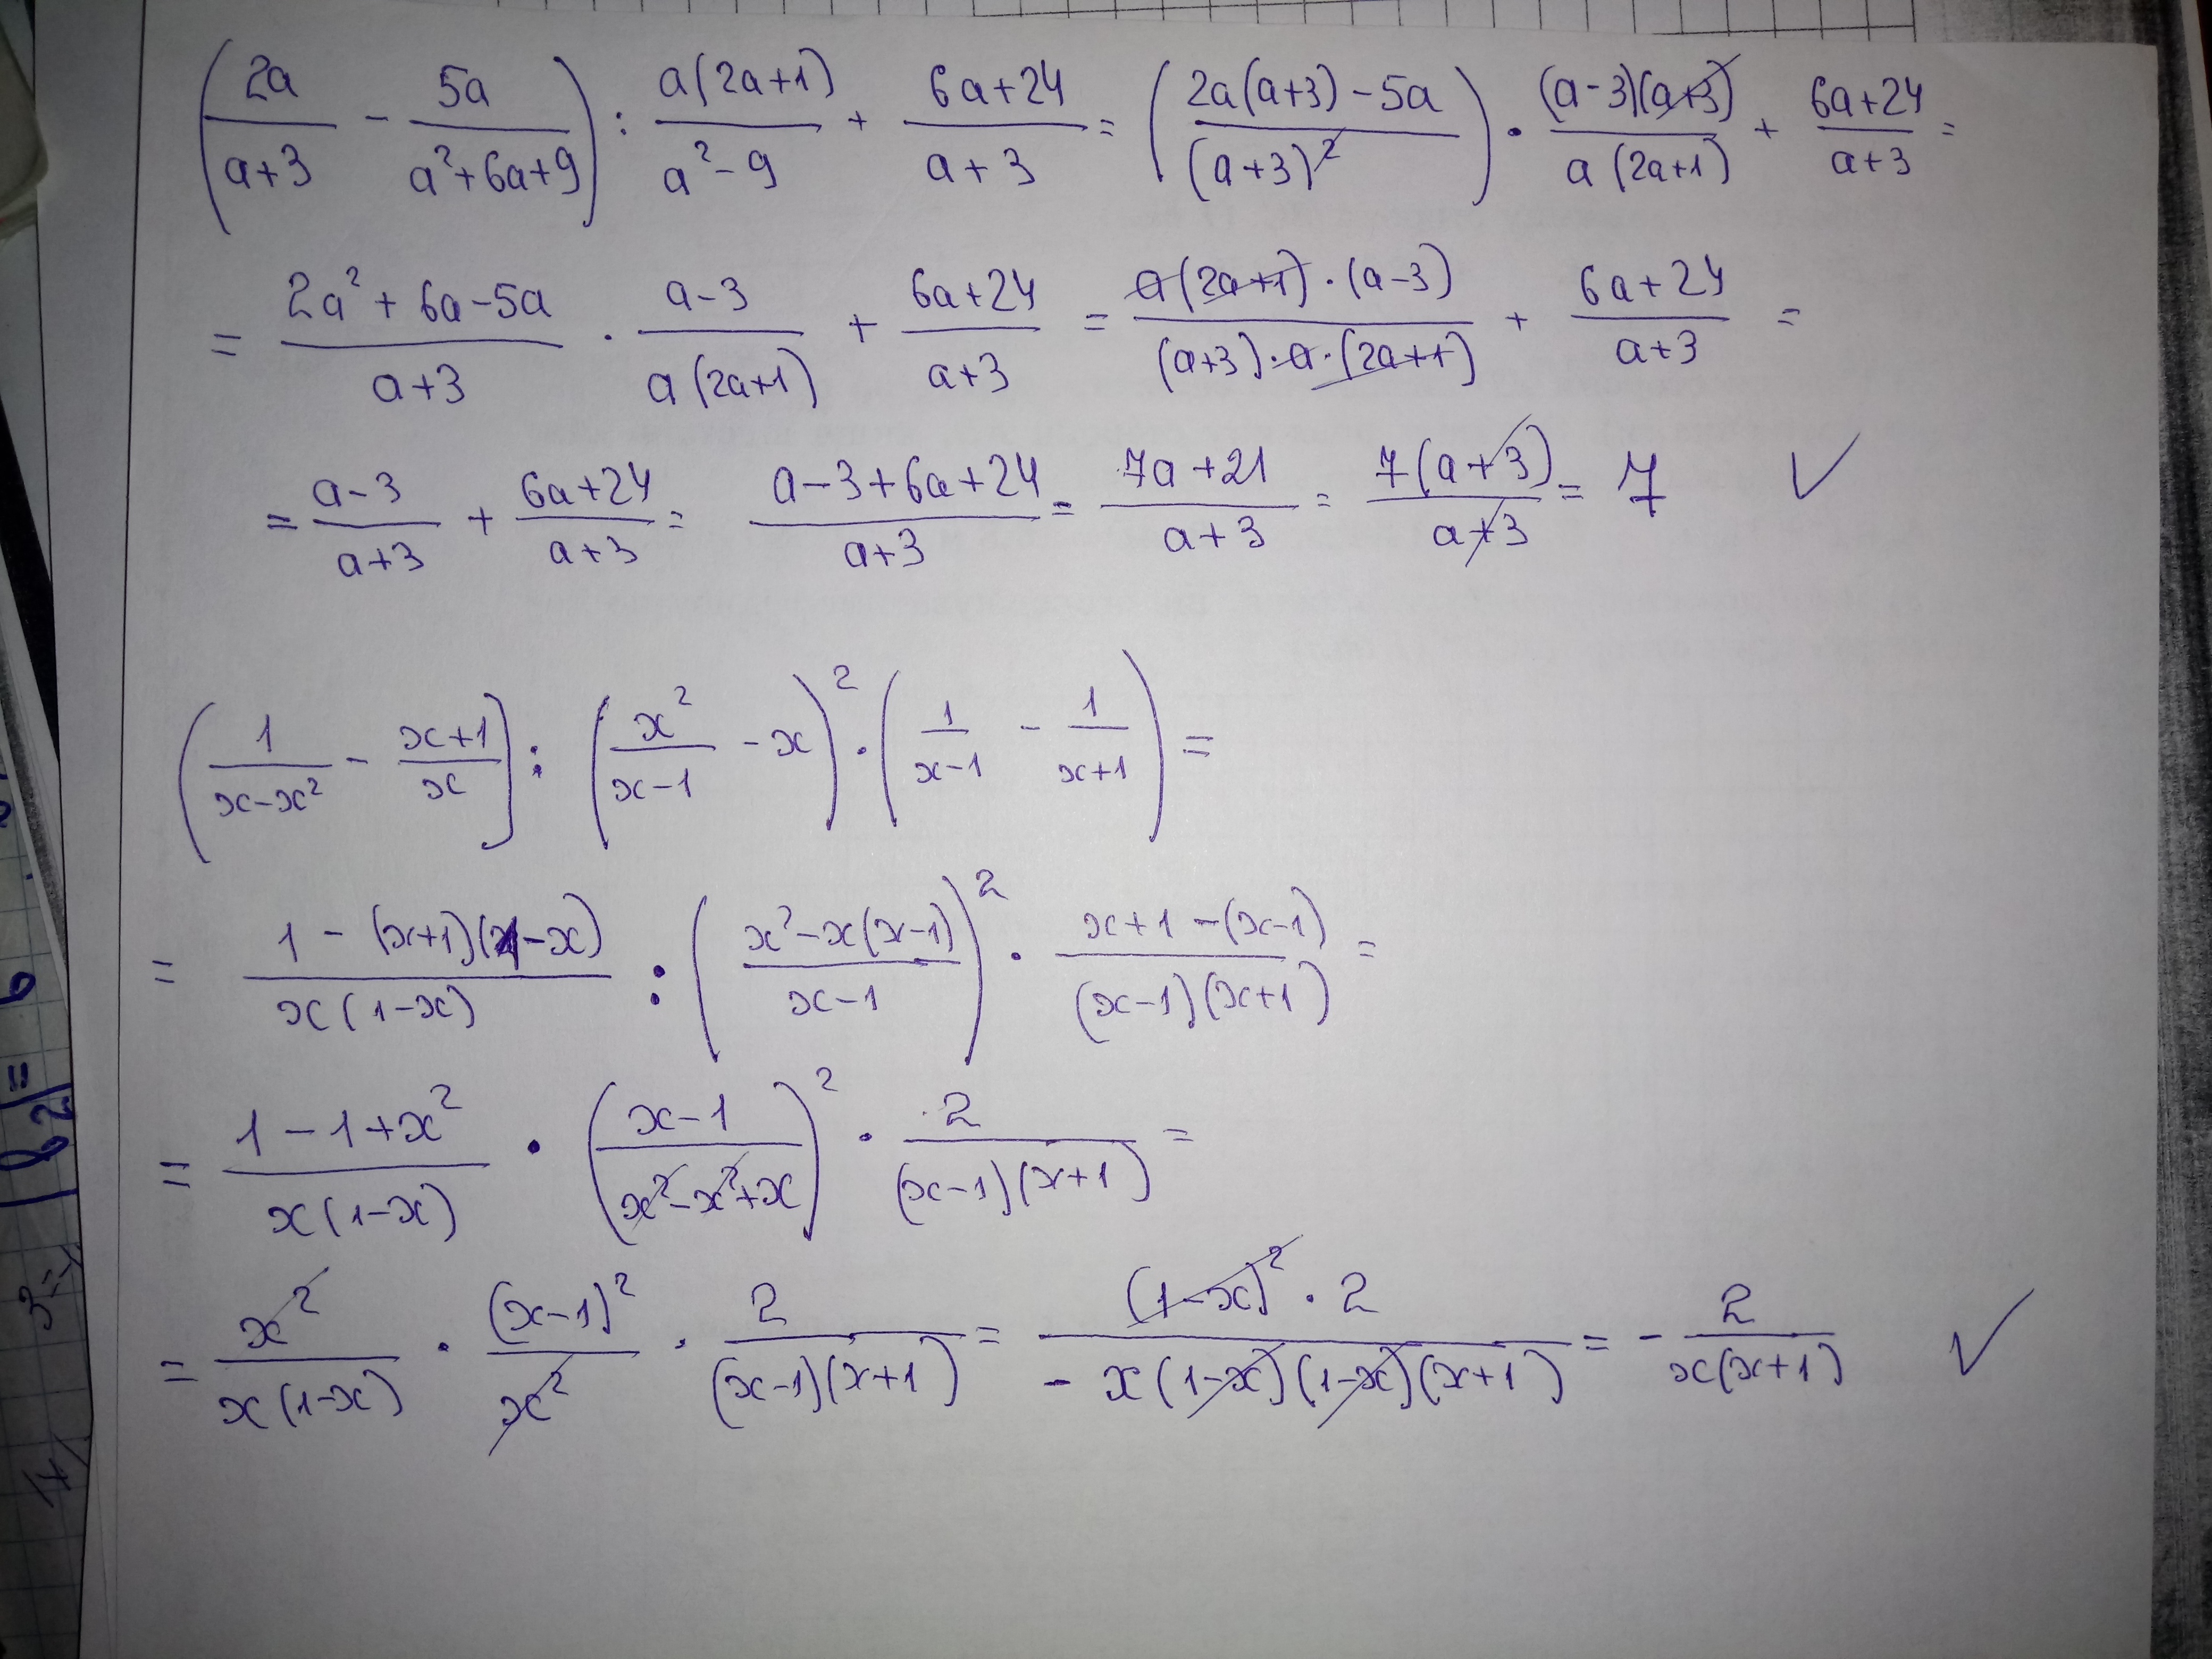 (2a/(a+3) - 5a/(a²+6a+9)) : a(2a+1)/(a²-9) + (6a+24)/(a+3) = ((2a(a+3)-5a)/(a+3)²) · (a-3)(a+3)/(a(2a+1)) + (6a+24)/(a+3) =
= (2a²+6a-5a)/(a+3) · (a-3)/(a(2a+1)) + (6a+24)/(a+3) = (a(2a+1)·(a-3))/((a+3)·a·(2a+1)) + (6a+24)/(a+3) =
= (a-3)/(a+3) + (6a+24)/(a+3) = (a-3+6a+24)/(a+3) = (7a+21)/(a+3) = 7(a+3)/(a+3) = 7 ✓
(1/(x-x²) - (x+1)/x) : (x²/(x-1) - x)² · (1/(x-1) - 1/(x+1)) =
= (1-(x+1)(1-x))/(x(1-x)) : ((x²-x(x-1))/(x-1))² · (x+1-(x-1))/((x-1)(x+1)) =
= (1-1+x²)/(x(1-x)) · ((x-1)/(x²-x²+x))² · 2/((x-1)(x+1)) =
= x²/(x(1-x)) · (x-1)²/x² · 2/((x-1)(x+1)) = ((1-x)²·2)/(-x(1-x)(1-x)(x+1)) = -2/(x(x+1)) ✓